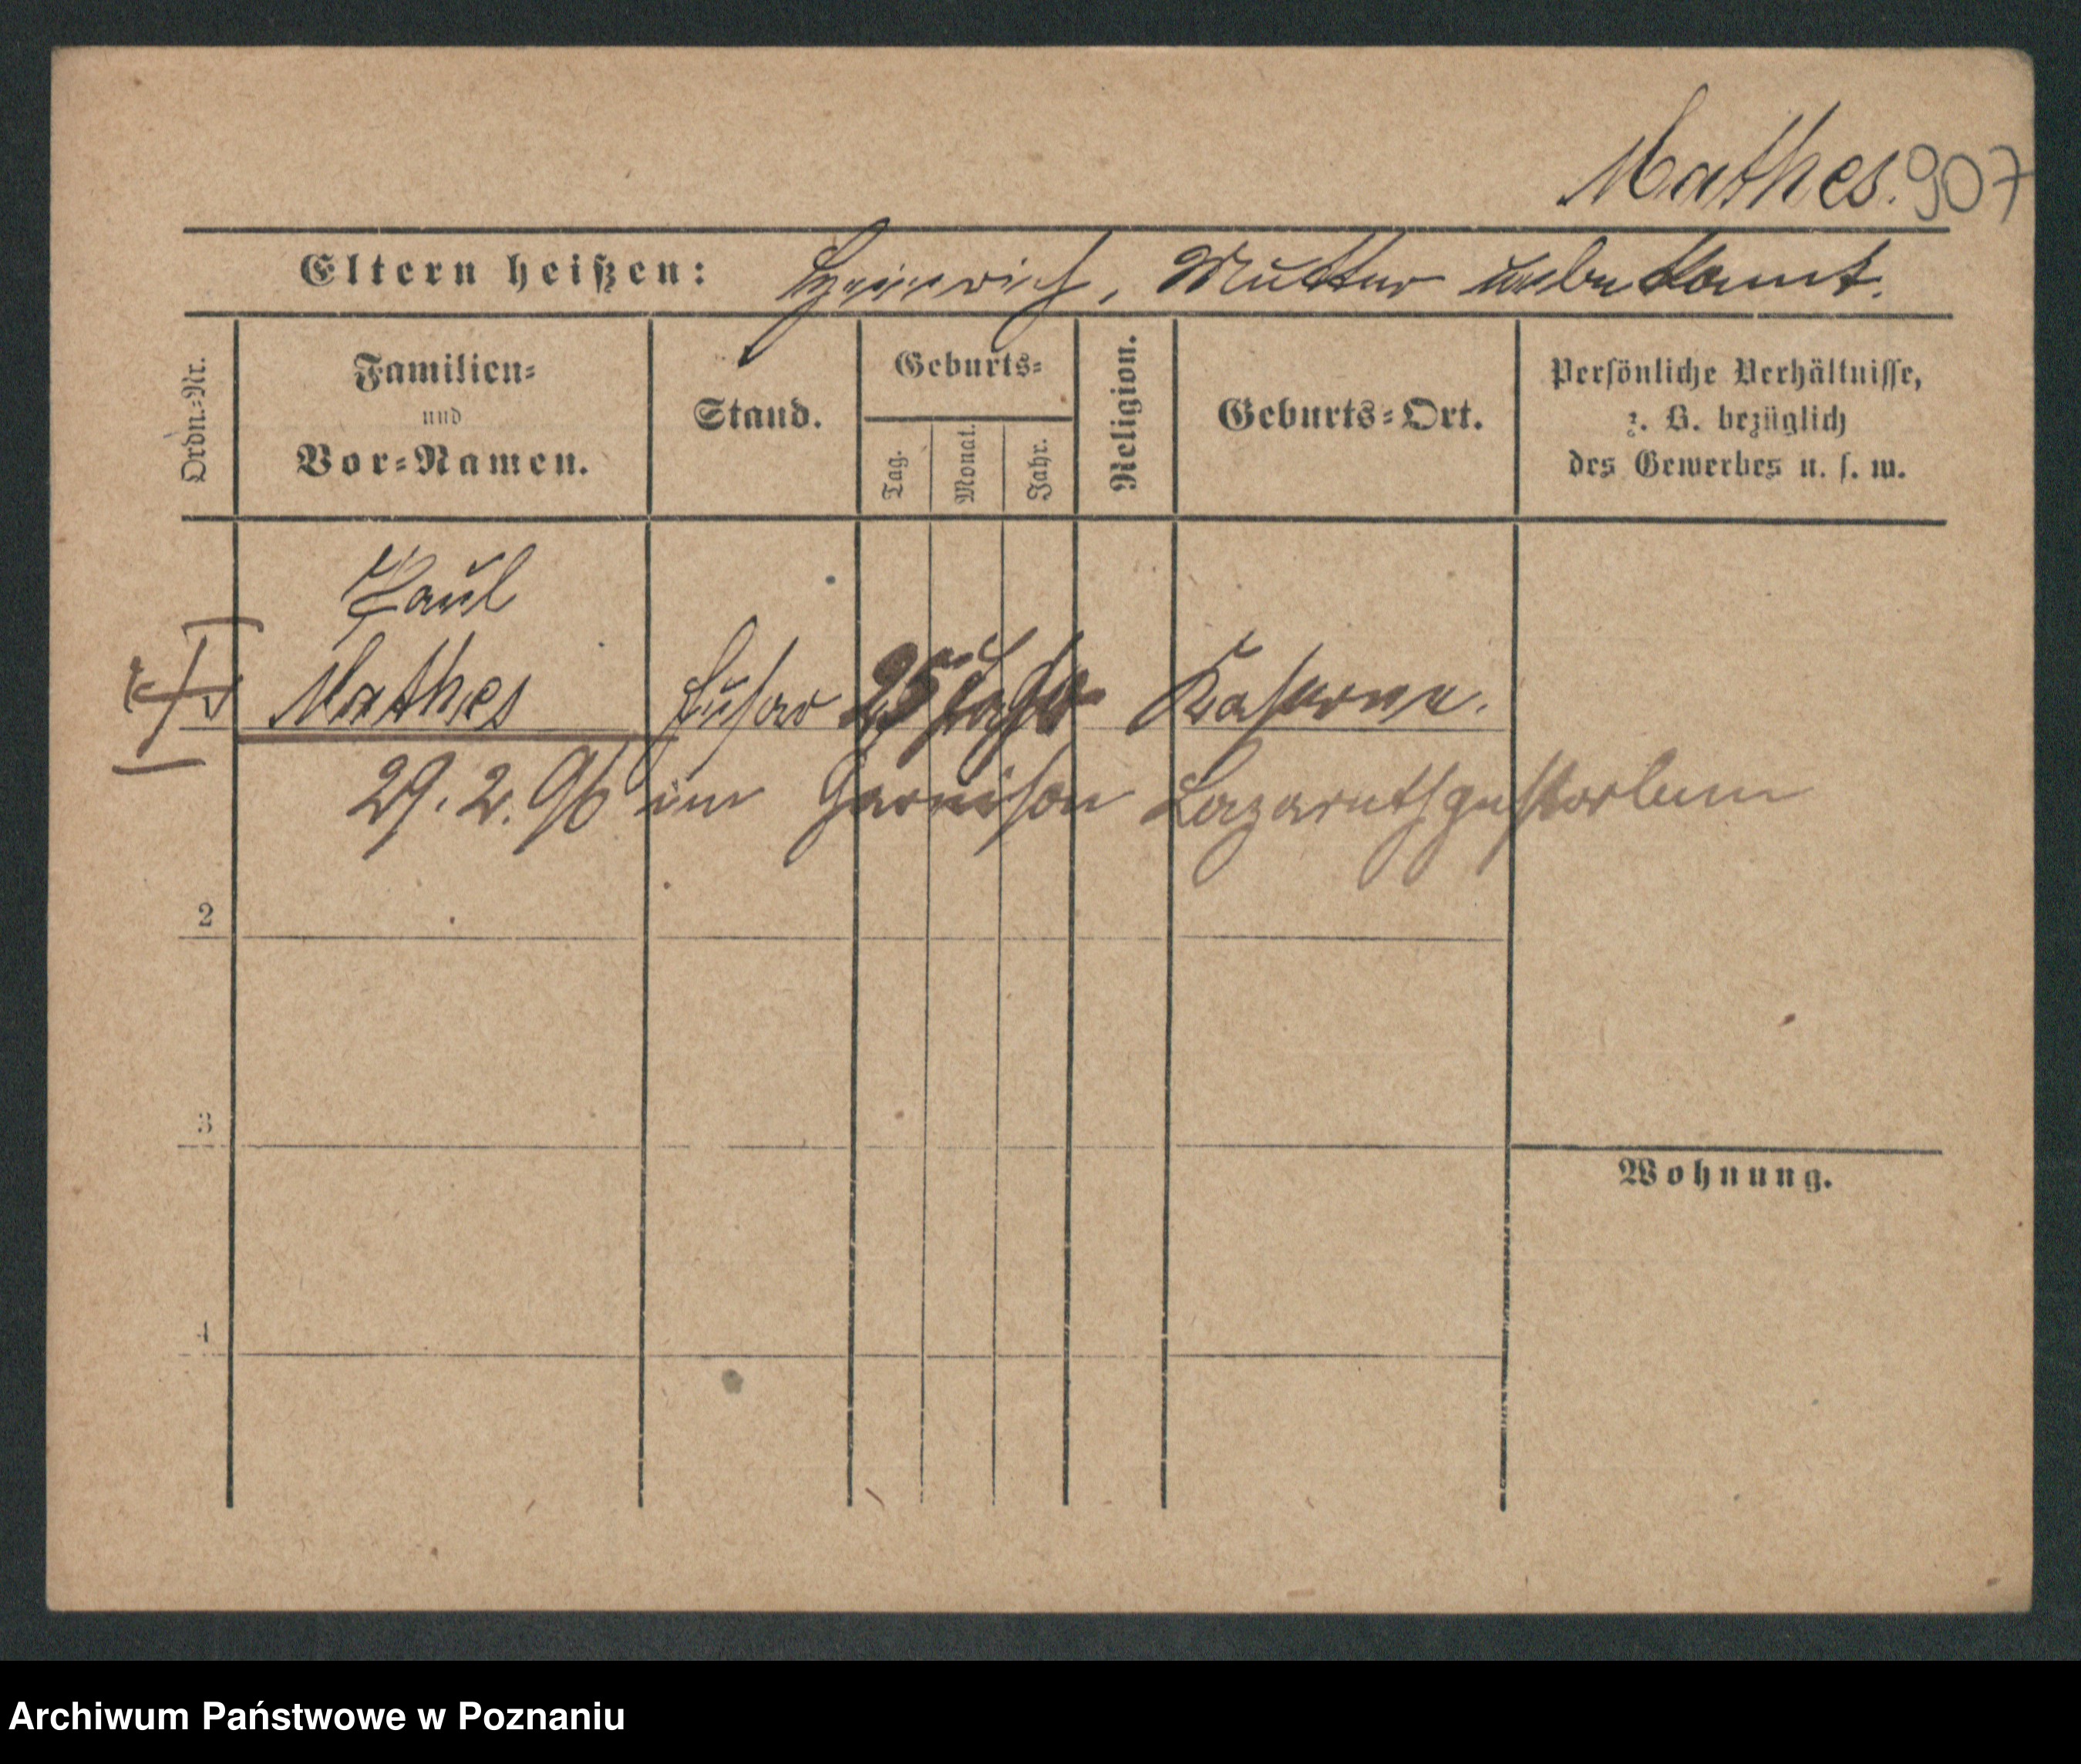 Mathes. 907
Eltern heißen: Heinrich, Mutter unbekannt.
Ordn.-Nr.
Familien-
und
Vor-Namen.
Stand.
Geburts-
Tag.
Monat.
Jahr.
Religion.
Geburts-Ort.
Persönliche Verhältnisse,
z. B. bezüglich
des Gewerbes u. s. w.
Paul
Mathes Husar 25 Jahr Kaserne.
29. 2. 96 im Garnison Lazareth gestorben
2
3
Wohnung.
4
Archiwum Państwowe w Poznaniu